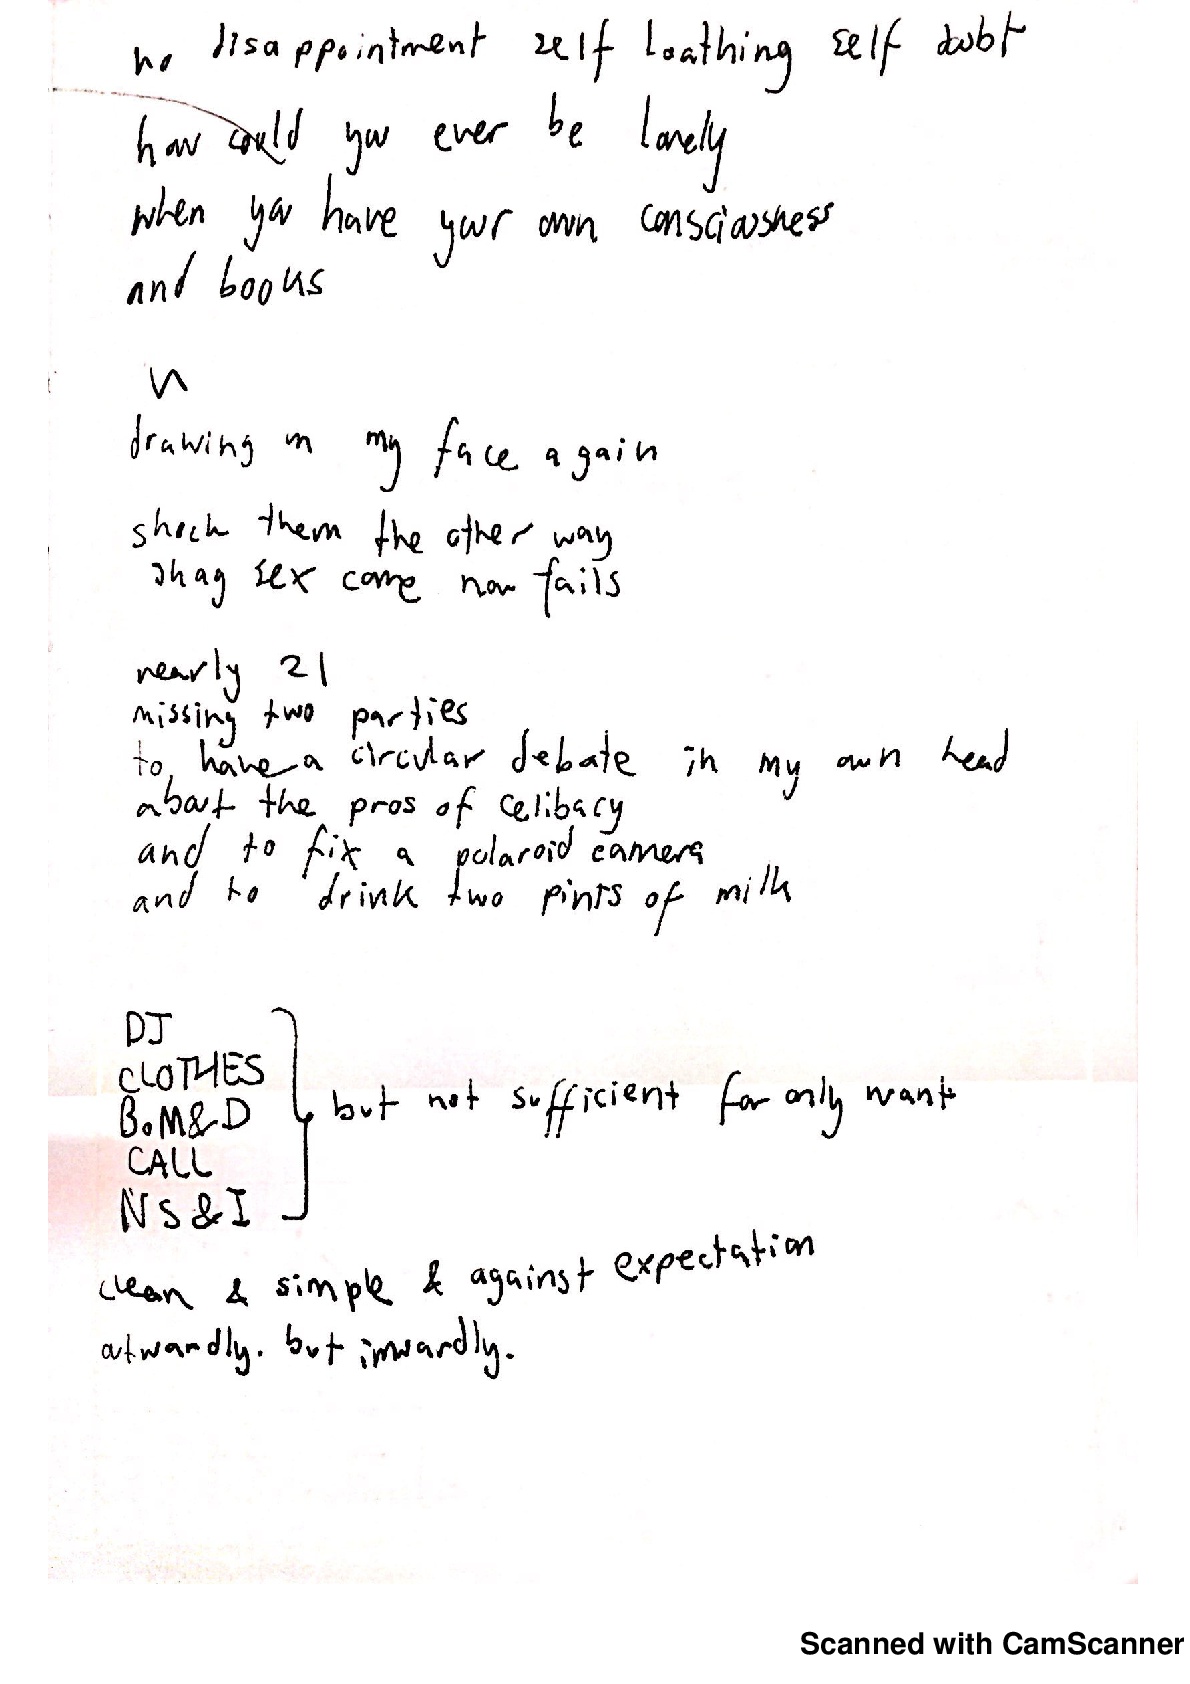 no disappointment self loathing self doubt
how could you ever be lonely
when you have your own consciousness
and books
drawing on my face again
shock them the other way
shag sex come now fails
nearly 21
missing two parties
to have a circular debate in my own head
about the pros of celibacy
and to fix a polaroid camera
and to drink two pints of milk
DJ
CLOTHES
B.M&D
CALL
NS&I
but not sufficient for only want
clean & simple & against expectation
outwardly. but inwardly.
Scanned with CamScanner